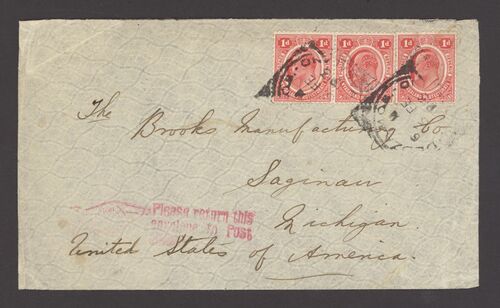 1d 1d 1d
The
Brooks Manufacturing Co.
Saginaw
Please return this
envelope to Post
Michigan.
United States of America.